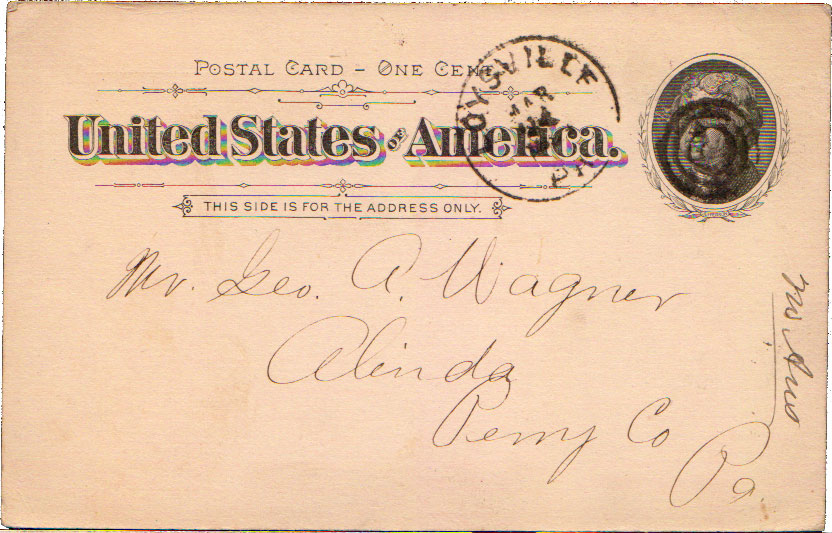 POSTAL CARD - ONE CENT
United States of America.
THIS SIDE IS FOR THE ADDRESS ONLY.
OYSVILLE
MAR
PA
Mr. Geo. A. Wagner
Alinda
Perry Co
Pa.